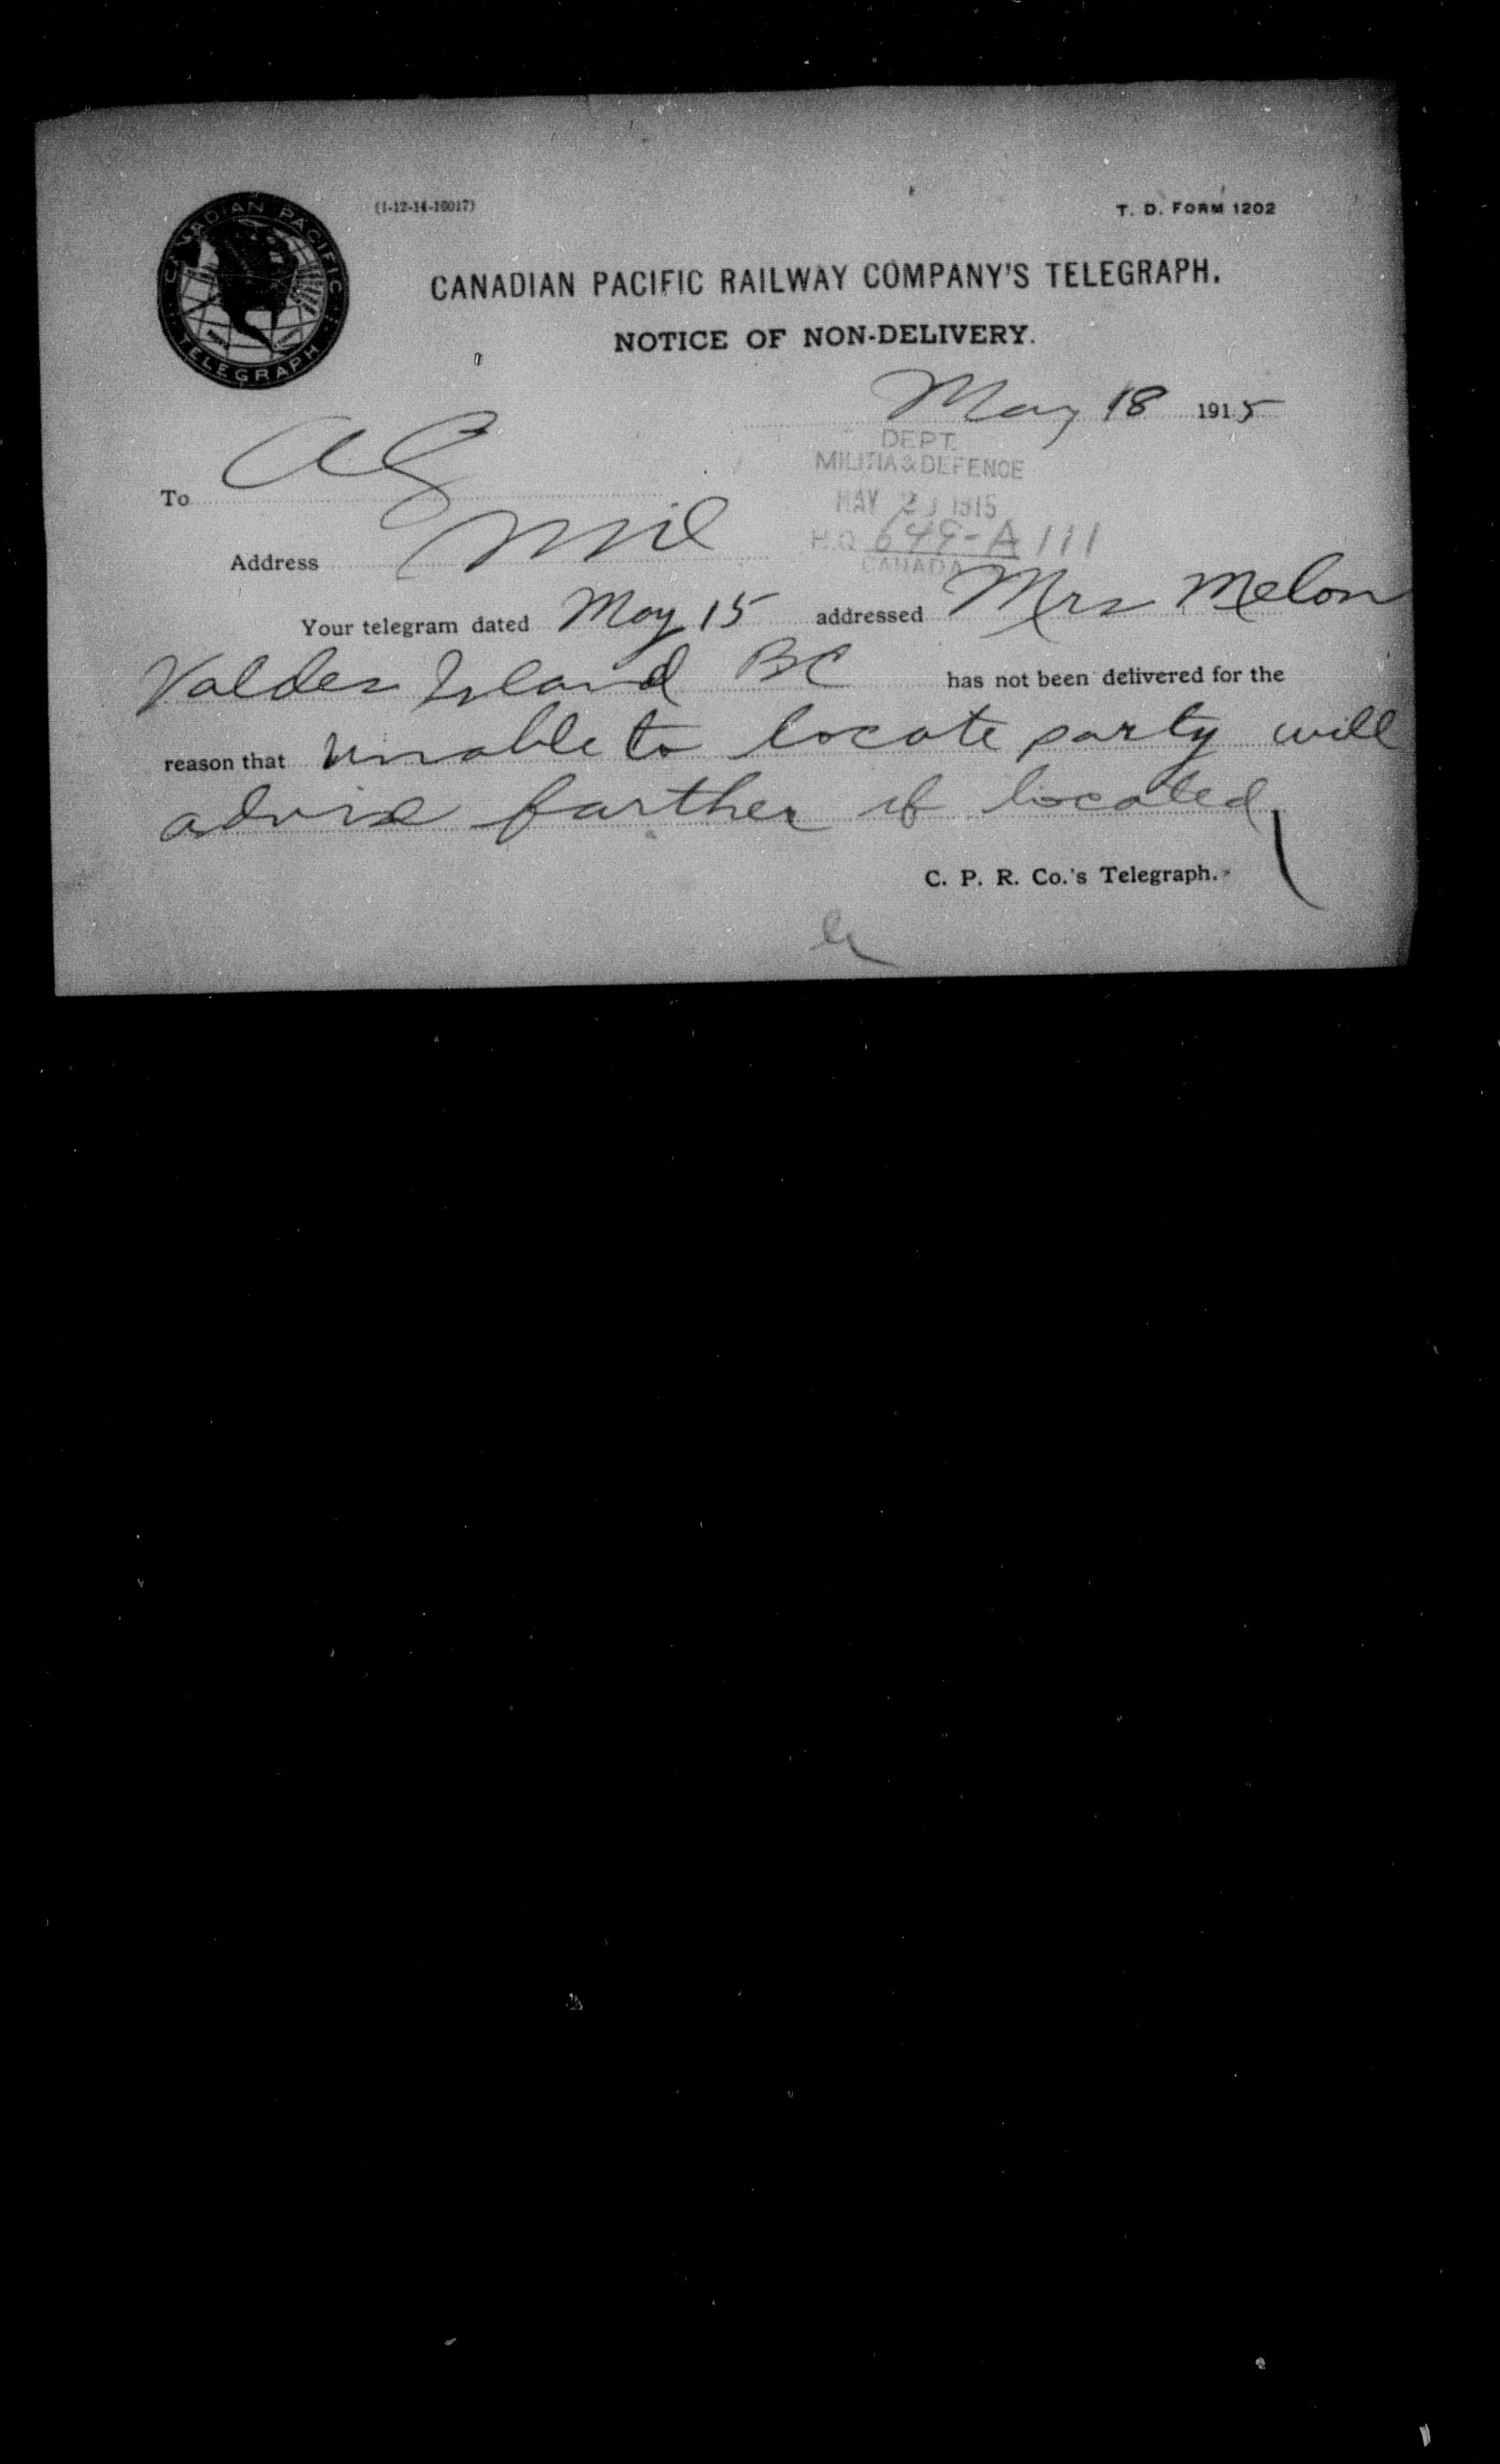 (1-12-14-10017)
T. D. FORM 1202
CANADIAN PACIFIC TELEGRAPH
CANADIAN PACIFIC RAILWAY COMPANY'S TELEGRAPH.
NOTICE OF NON-DELIVERY.
May 18 1915
DEPT.
MILITIA & DEFENCE
To AG
MAY 1915
Address Mil
H.Q. 649-A 111
CANADA
Your telegram dated May 15 addressed Mrs Melon
Valdez Island BC has not been delivered for the
reason that unable to locate party will
advise farther if located
C. P. R. Co.'s Telegraph.